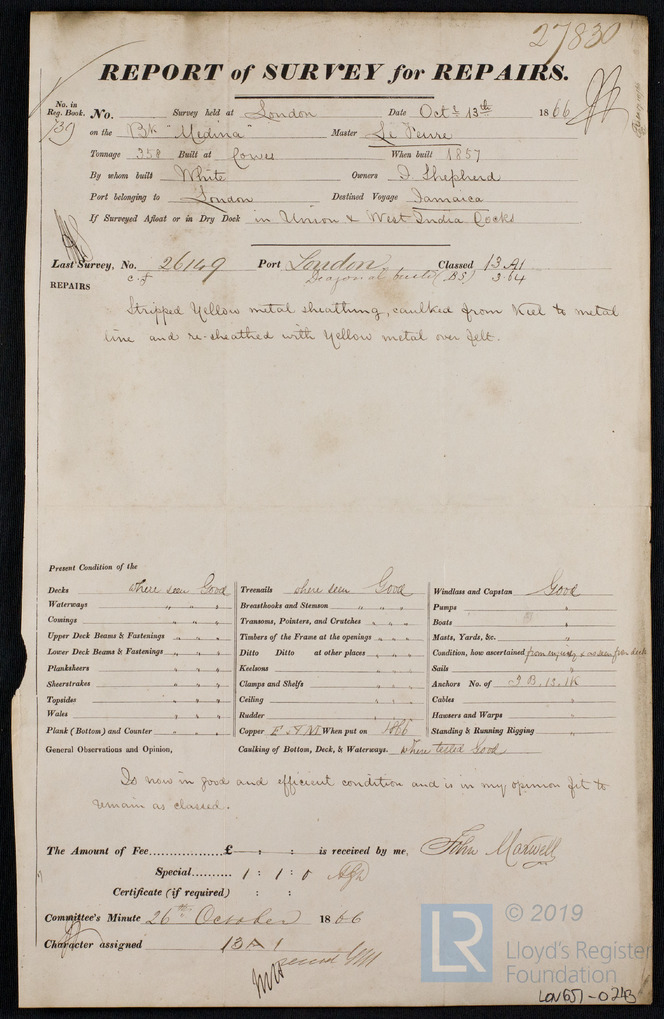 27830
REPORT of SURVEY for REPAIRS.
No. in Reg. Book. No. Survey held at London Date Oct.r 13th 1866
739 on the Bk "Medina" Master
Tonnage 358 Built at Cowes When built 1857
By whom built White Owners J. Shepherd
Port belonging to London Destined Voyage Jamaica
If Surveyed Afloat or in Dry Dock in Union & West India Docks
Last Survey, No. 26149 Port London Classed 13.A1
Diagonal (BS) 3.64
REPAIRS
Stripped Yellow metal sheathing, caulked from Keel to metal
line and re-sheathed with Yellow metal over felt.
Present Condition of the
Decks where seen Good Treenails where seen Good Windlass and Capstan Good
Waterways " " " Breasthooks and Stemson " " " Pumps "
Comings " " " Transoms, Pointers, and Crutches " " " Boats "
Upper Deck Beams & Fastenings " " " Timbers of the Frame at the openings " " " Masts, Yards, &c. "
Lower Deck Beams & Fastenings " " " Ditto Ditto at other places " " " Condition, how ascertained from enquiry & as seen from deck
Planksheers " " " Keelsons " " " Sails "
Sheerstrakes " " " Clamps and Shelfs " " " Anchors No. of 3 B. 1S. 1K
Topsides " " " Ceiling " " " Cables "
Wales " " " Rudder " " " Hawsers and Warps "
Plank (Bottom) and Counter " " " Copper F & YM When put on 1866 Standing & Running Rigging "
General Observations and Opinion, Caulking of Bottom, Deck, & Waterways. where tested Good
Is now in good and efficient condition and is in my opinion fit to
remain as classed.
The Amount of Fee...............£ : : is received by me, John Maxwell
Special......... 1 : 1 : 0
Certificate (if required) : :
Committee's Minute 26th October 1866
Character assigned 13A1
© 2019
LR Lloyd's Register
Foundation
LON651-0243